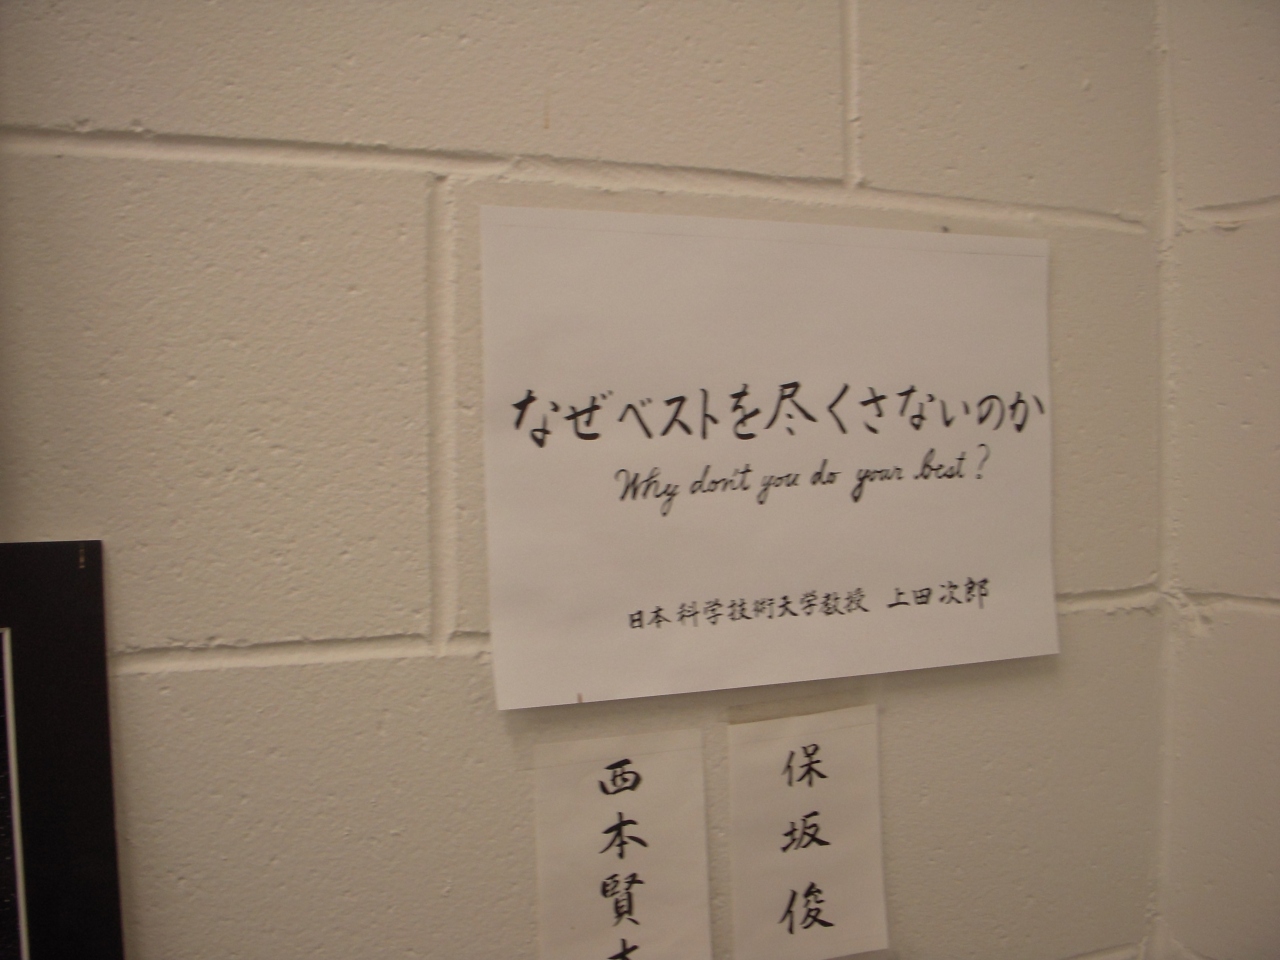 なぜベストを尽くさないのか
Why don't you do your best?
日本科学技術大学教授 上田次郎
保坂俊
西本賢